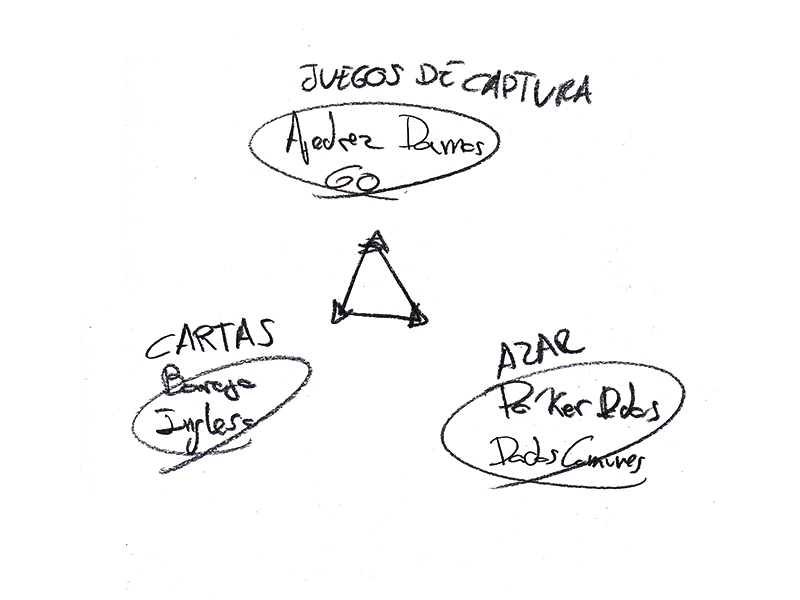 JUEGOS DE CAPTURA
Ajedrez Damas
GO
CARTAS
Baraja
Inglesa
AZAR
Poker Dados
Dados Comunes